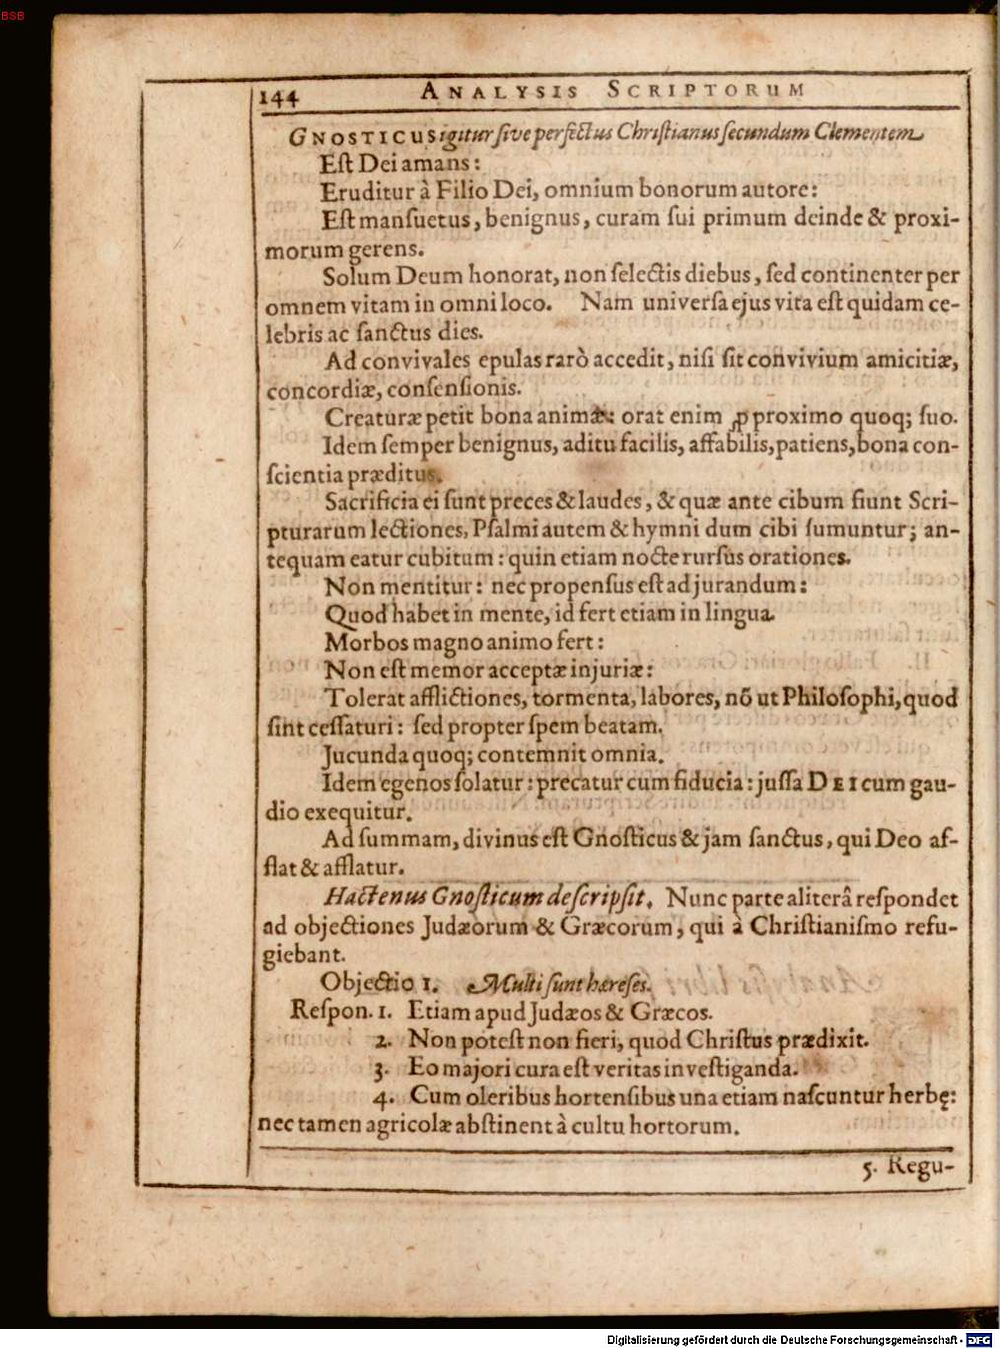 BSB
144 ANALYSIS SCRIPTORUM
GNOSTICUS igitur ſive perfectus Chriſtianus ſecundum Clementem
Eſt Dei amans:
Eruditur à Filio Dei, omnium bonorum autore:
Eſt manſuetus, benignus, curam ſui primum deinde & proxi-
morum gerens.
Solum Deum honorat, non ſelectis diebus, ſed continenter per
omnem vitam in omni loco. Nam universa ejus vita eſt quidam ce-
lebris ac ſanctus dies.
Ad convivales epulas rarò accedit, niſi ſit convivium amicitiæ,
concordiæ, conſenſionis.
Creaturæ petit bona animæ: orat enim ꝓ proximo quoq; ſuo.
Idem ſemper benignus, aditu facilis, affabilis, patiens, bona con-
ſcientia præditus.
Sacrificia ei ſunt preces & laudes, & quæ ante cibum fiunt Scri-
pturarum lectiones, Pſalmi autem & hymni dum cibi ſumuntur; an-
tequam eatur cubitum: quin etiam nocte rurſus orationes.
Non mentitur: nec propenſus eſt ad jurandum:
Quod habet in mente, id fert etiam in lingua.
Morbos magno animo fert:
Non eſt memor acceptæ injuriæ:
Tolerat afflictiones, tormenta, labores, nõ ut Philoſophi, quod
ſint ceſſaturi: ſed propter ſpem beatam.
Jucunda quoq; contemnit omnia.
Idem egenos ſolatur: precatur cum fiducia: juſſa DEI cum gau-
dio exequitur.
Ad ſummam, divinus eſt Gnoſticus & jam ſanctus, qui Deo af-
flat & afflatur.
Hactenus Gnoſticum deſcripſit. Nunc parte aliterâ reſpondet
ad objectiones Judæorum & Græcorum, qui à Chriſtianiſmo refu-
giebant.
Objectio 1. Multi ſunt hæreſes.
Reſpon. 1. Etiam apud Judæos & Græcos.
2. Non poteſt non fieri, quod Chriſtus prædixit.
3. Eo majori cura eſt veritas inveſtiganda.
4. Cum oleribus hortenſibus una etiam naſcuntur herbę:
nec tamen agricolæ abſtinent à cultu hortorum.
5. Regu-
Digitalisierung gefördert durch die Deutsche Forschungsgemeinschaft - DFG